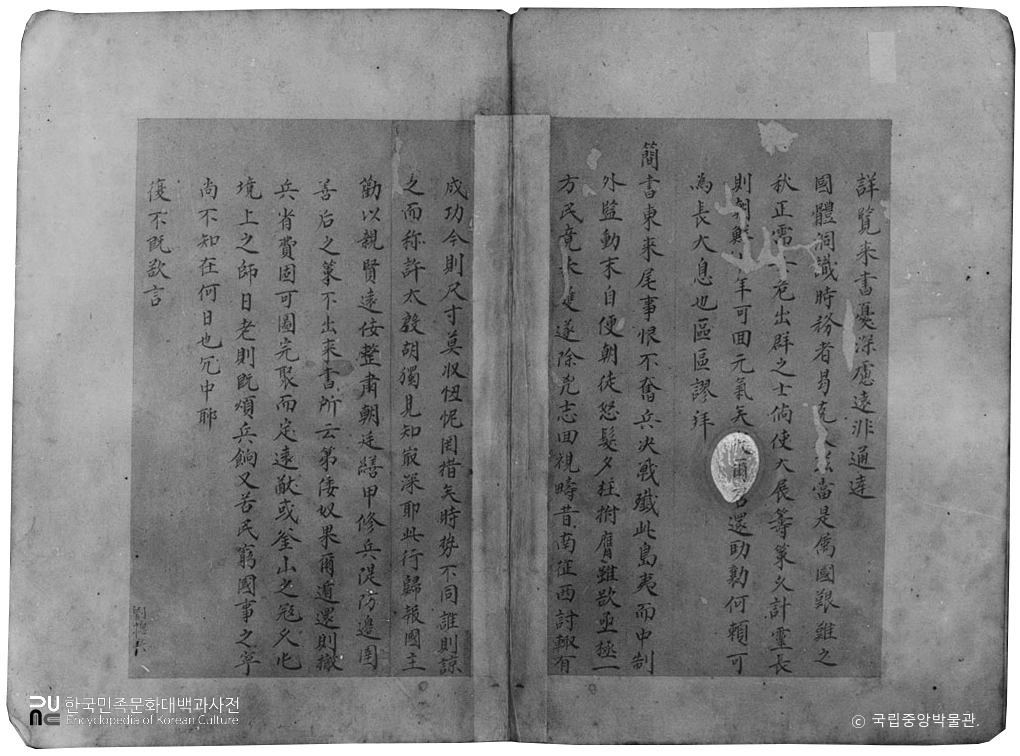 詳覽来書憂深慮遠非通達
國體洞識時務者曷克當是厲國艱難之
秋正需出群之士倘使大展籌策久計靈長
則朝鮮年可回元氣矣爾還助勦何賴可
為長大息也區區謬拜
簡書東来尾事恨不奮兵决戰殲此島夷而中制
外監動末自便朝徒怒髮夕枉拊膺雖欲亟極一
方民竟大遂除兇志回視疇昔南征西討輙有
成功今則尺寸莫收忸怩罔措矣時势不同誰則諒
之而称許太殷胡獨見知㝡深耶此行歸報國主
勸以親賢遠佞整肅朝廷繕甲修兵隄防邊圉
善后之策不出来書所云第倭奴果爾遁還則撤
兵省費固可圖完聚而定遠猷或釜山之寇久屯
境上之師日老則既煩兵餉又苦民窮國事之寧
尚不知在何日也冗中耶
復不既欲言
劉
한국민족문화대백과사전
Encyclopedia of Korean Culture
© 국립중앙박물관.